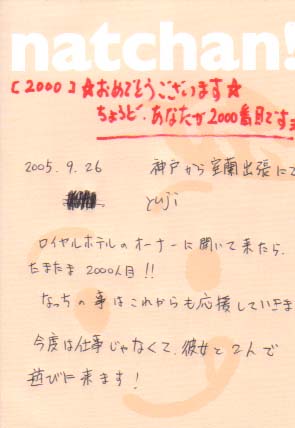 natchan!
[2000] ☆おめでとうございます☆
ちょうど、あなたが2000番目です
2005.9.26 神戸から室蘭出張にて
yuji
ロイヤルホテルのオーナーに聞いて来たら、
たまたま2000人目!!
なっちの事はこれからも応援していきま
今度は仕事じゃなくて、彼女と2人で
遊びに来ます!